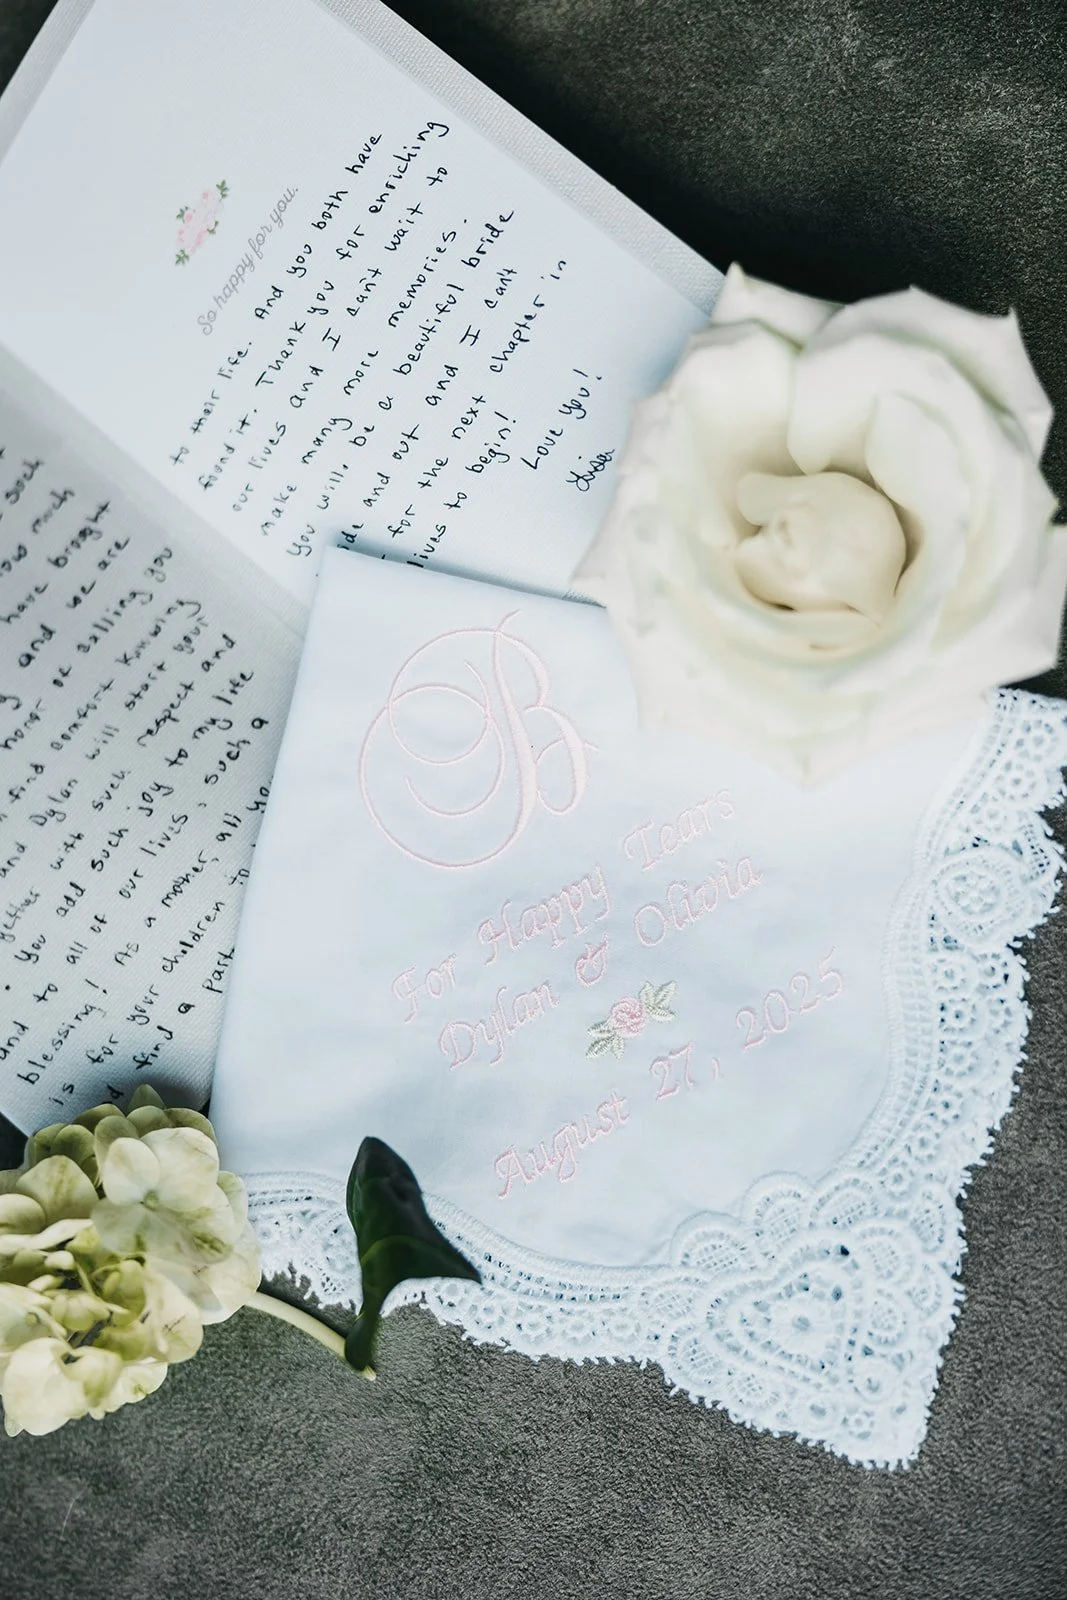 such
how much
have brought
and we are
honor of calling you
find comfort knowing
and Dylan will start your
gether with such respect and
You add such joy to my life
and to all of our lives, such a
blessing! As a mother, all yo
is for your children to
find a part
So happy for you.
to their life. And you both have
found it. Thank you for enriching
our lives and I can't wait to
make many more memories.
You will be a beautiful bride
ide and out and I can't
for the next chapter in
lives to begin!
Love You!
Lisa
B
For Happy Tears
Dylan & Olivia
August 27, 2025